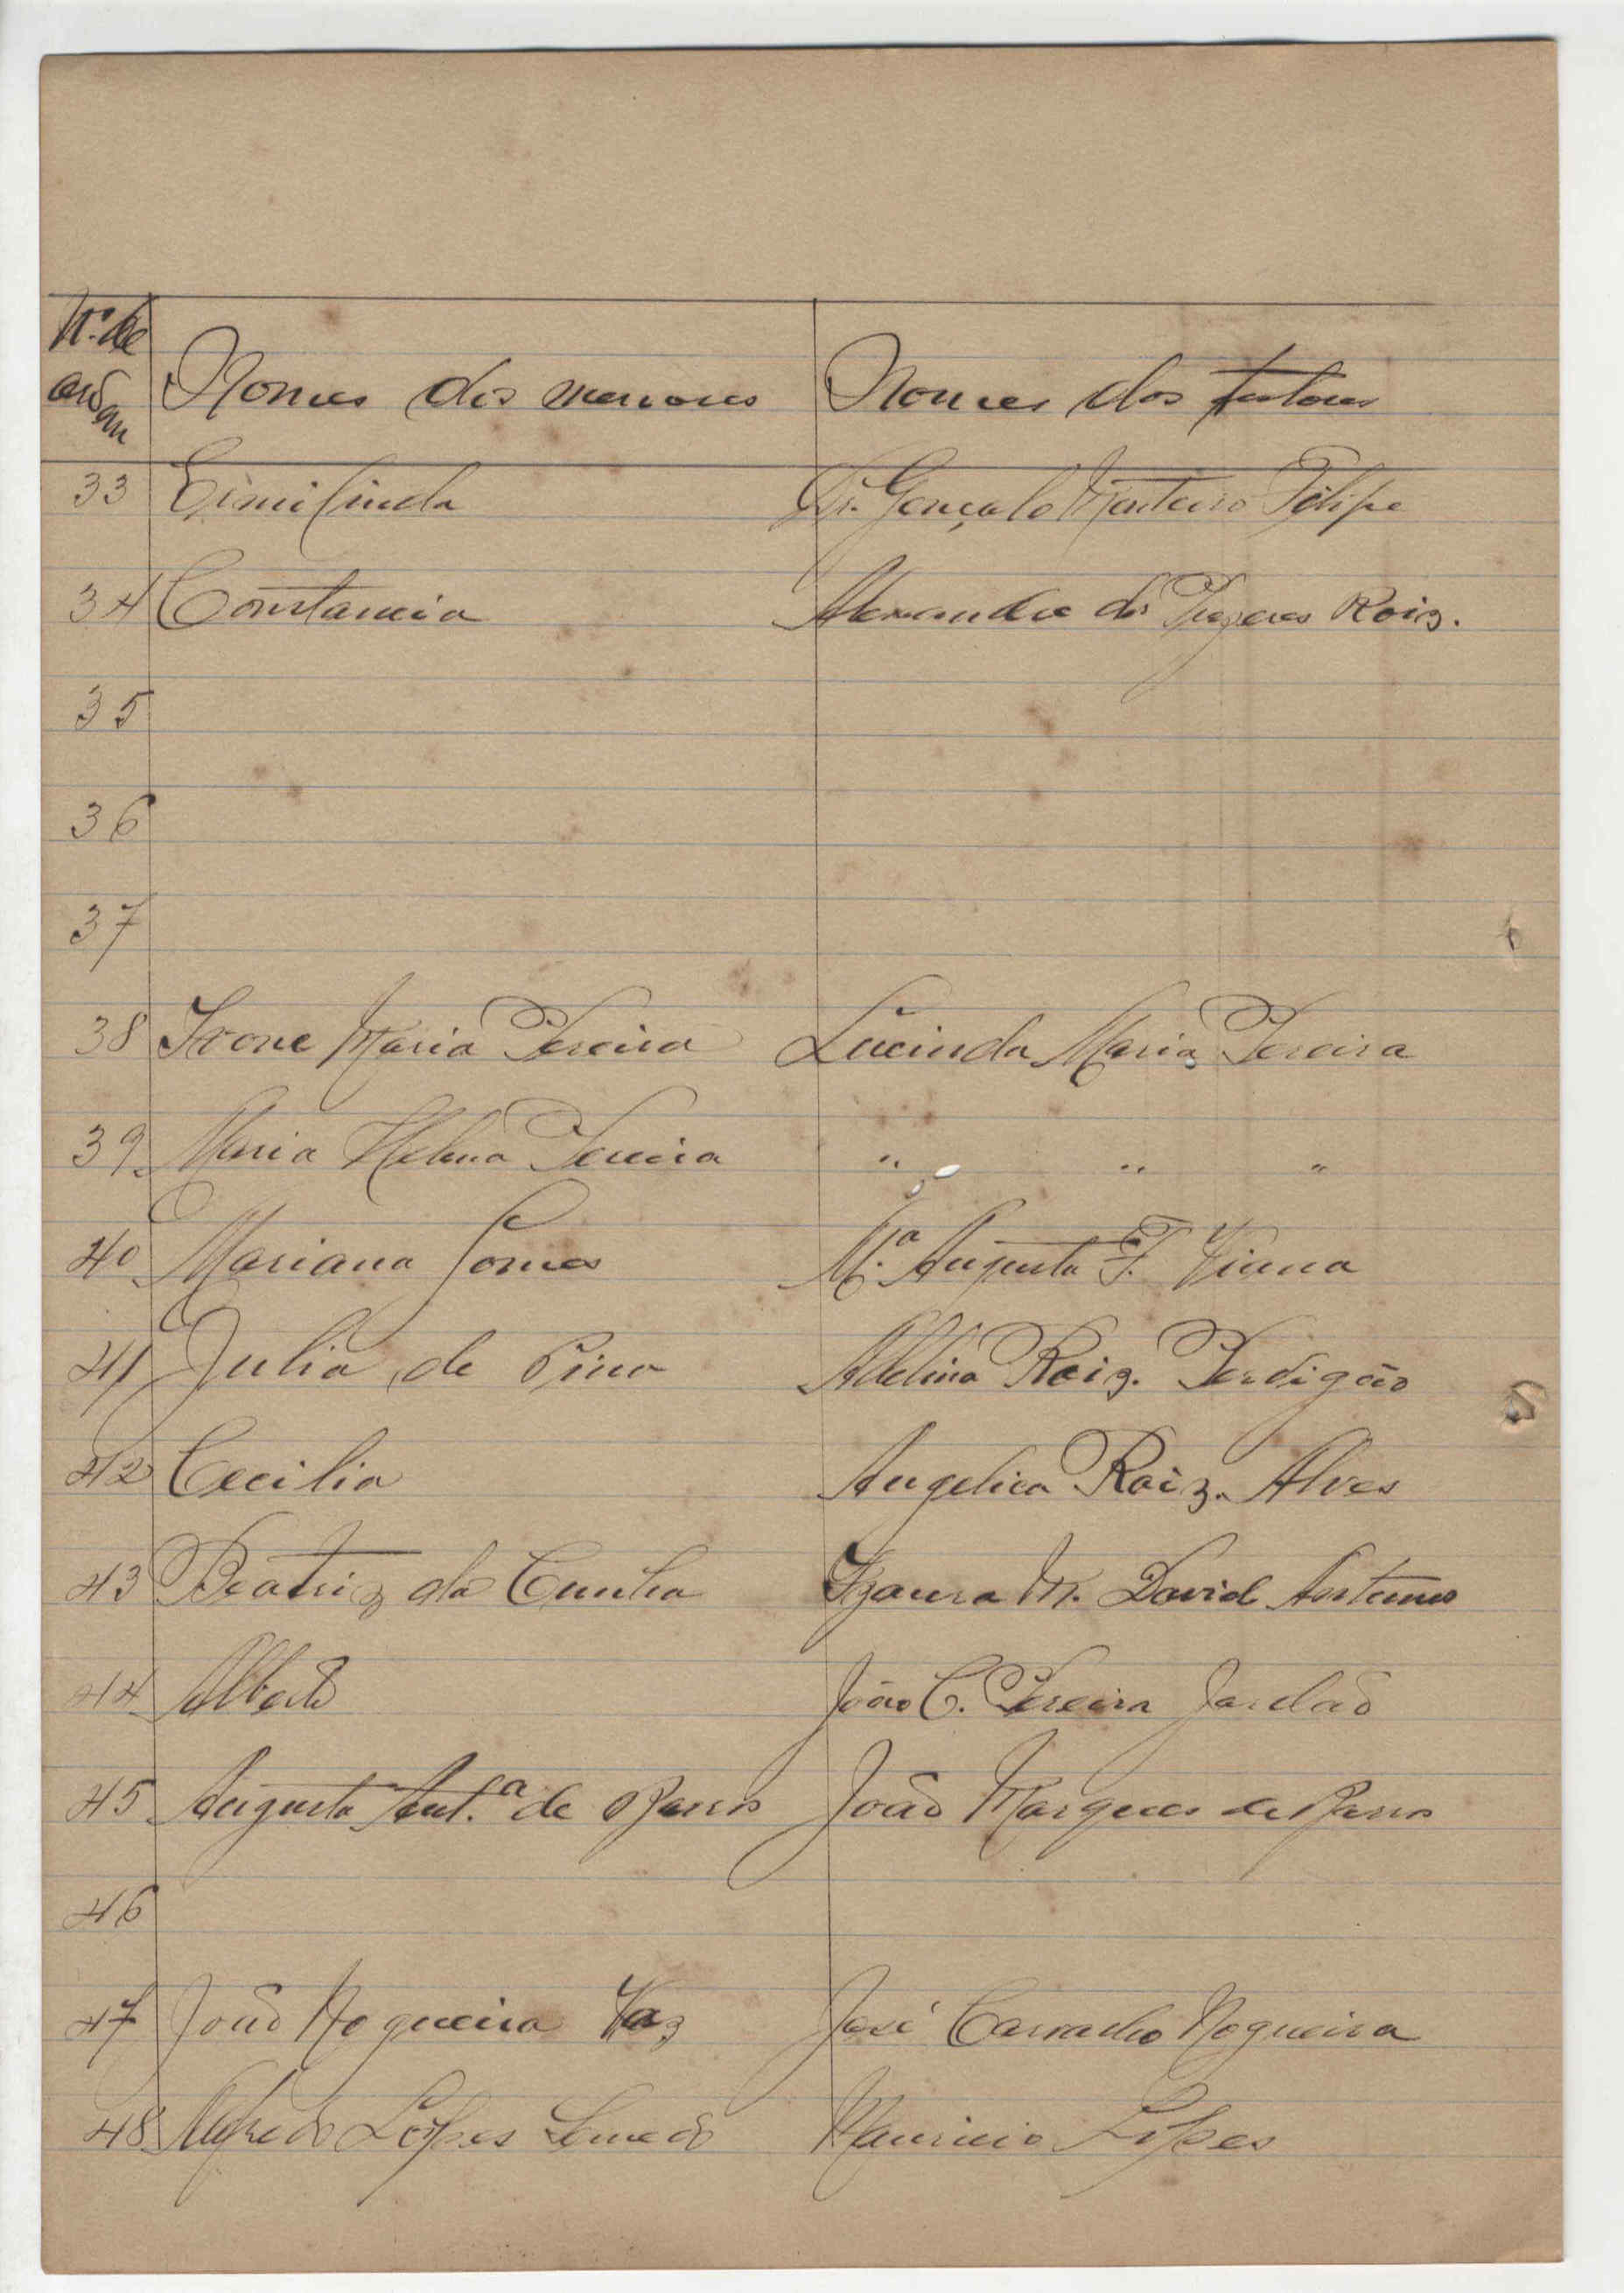 Nº. de ordem Nomes dos menores Nomes dos tutores
33 Ermilinda Dr. Gonçalo Monteiro Filipe
34 Constancia Alexandre dos Prazeres Roiz.
35
36
37
38 Ivone Maria Pereira Lucinda Maria Pereira
39 Maria Helena Pereira " " "
40 Mariana Gomes M.ª Augusta F. Viana
41 Julia de Pina Adelina Roiz. Perdigão
42 Cecilia Angelica Roiz. Alves
43 Beatriz da Cunha Izaura M. David Antunes
44 Alberto João C. Pereira Jardão
45 Augusta Ant.ª de Barros João Marques de Barros
46
47 João Nogueira Vaz José Carracho Nogueira
48 Alfredo Lopes Semedo Mauricio Lopes